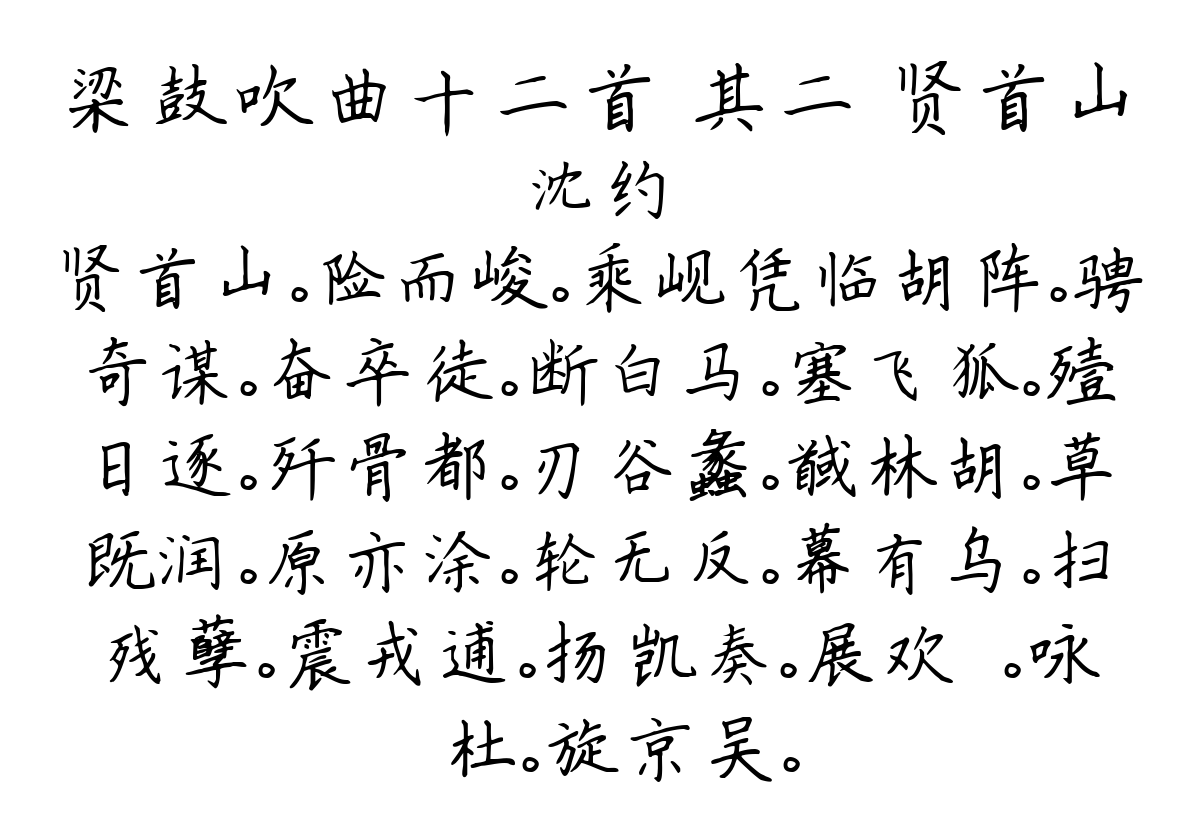 梁鼓吹曲十二首 其二 贤首山
沈约
贤首山。险而峻。乘岘凭临胡阵。骋
奇谋。奋卒徒。断白马。塞飞狐。殪
日逐。歼骨都。刃谷蠡。馘林胡。草
既润。原亦涂。轮无反。幕有乌。扫
残孽。震戎逋。扬凯奏。展欢 。咏
杜。旋京吴。